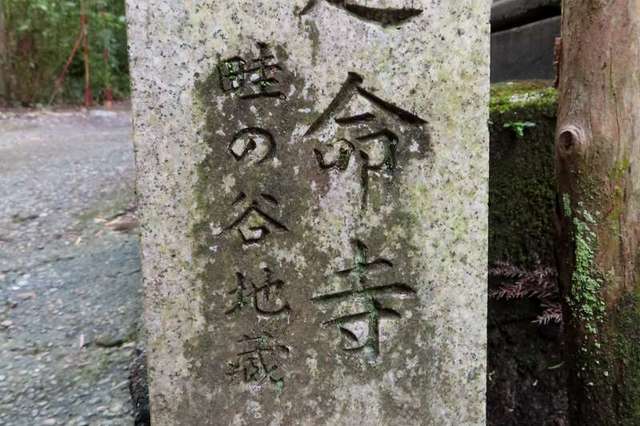 命寺
畦の谷地蔵